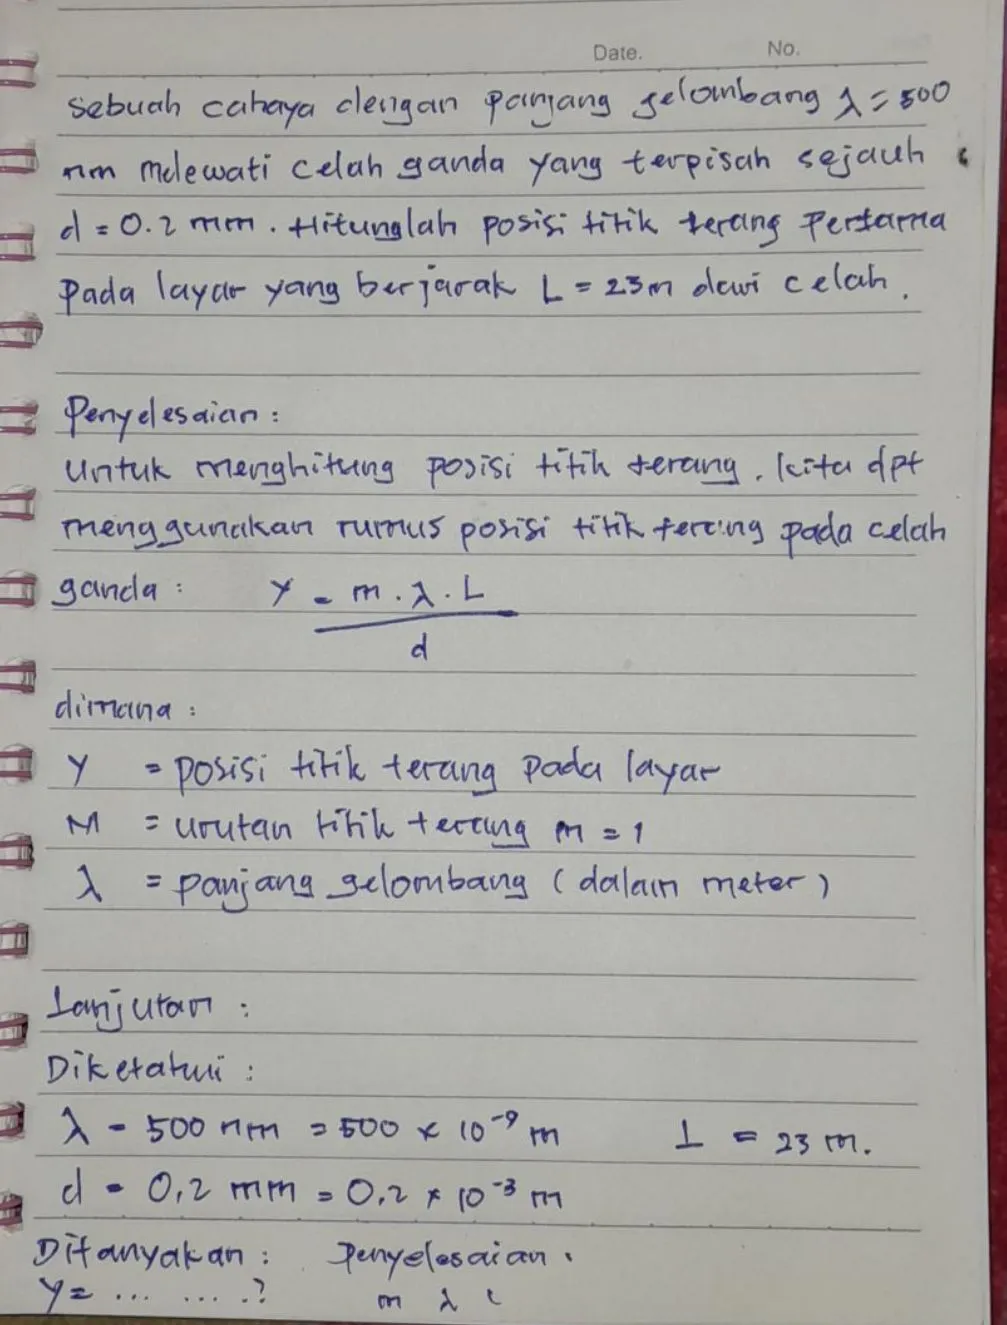 Date. No.
Sebuah cahaya dengan panjang gelombang λ = 500
nm melewati celah ganda yang terpisah sejauh
d = 0.2 mm. Hitunglah posisi titik terang Pertama
Pada layar yang berjarak L = 23m dari celah.
Penyelesaian :
Untuk menghitung posisi titik terang, kita dpt
menggunakan rumus posisi titik terang pada celah
ganda : Y = m . λ . L
d
dimana :
Y = posisi titik terang pada layar
M = urutan titik terang m = 1
λ = panjang gelombang (dalam meter)
Lanjutan :
Diketahui :
λ = 500 nm = 500 × 10⁻⁹ m L = 23 m.
d = 0,2 mm = 0,2 × 10⁻³ m
Ditanyakan : Penyelesaian :
Y = ... ... .? m λ